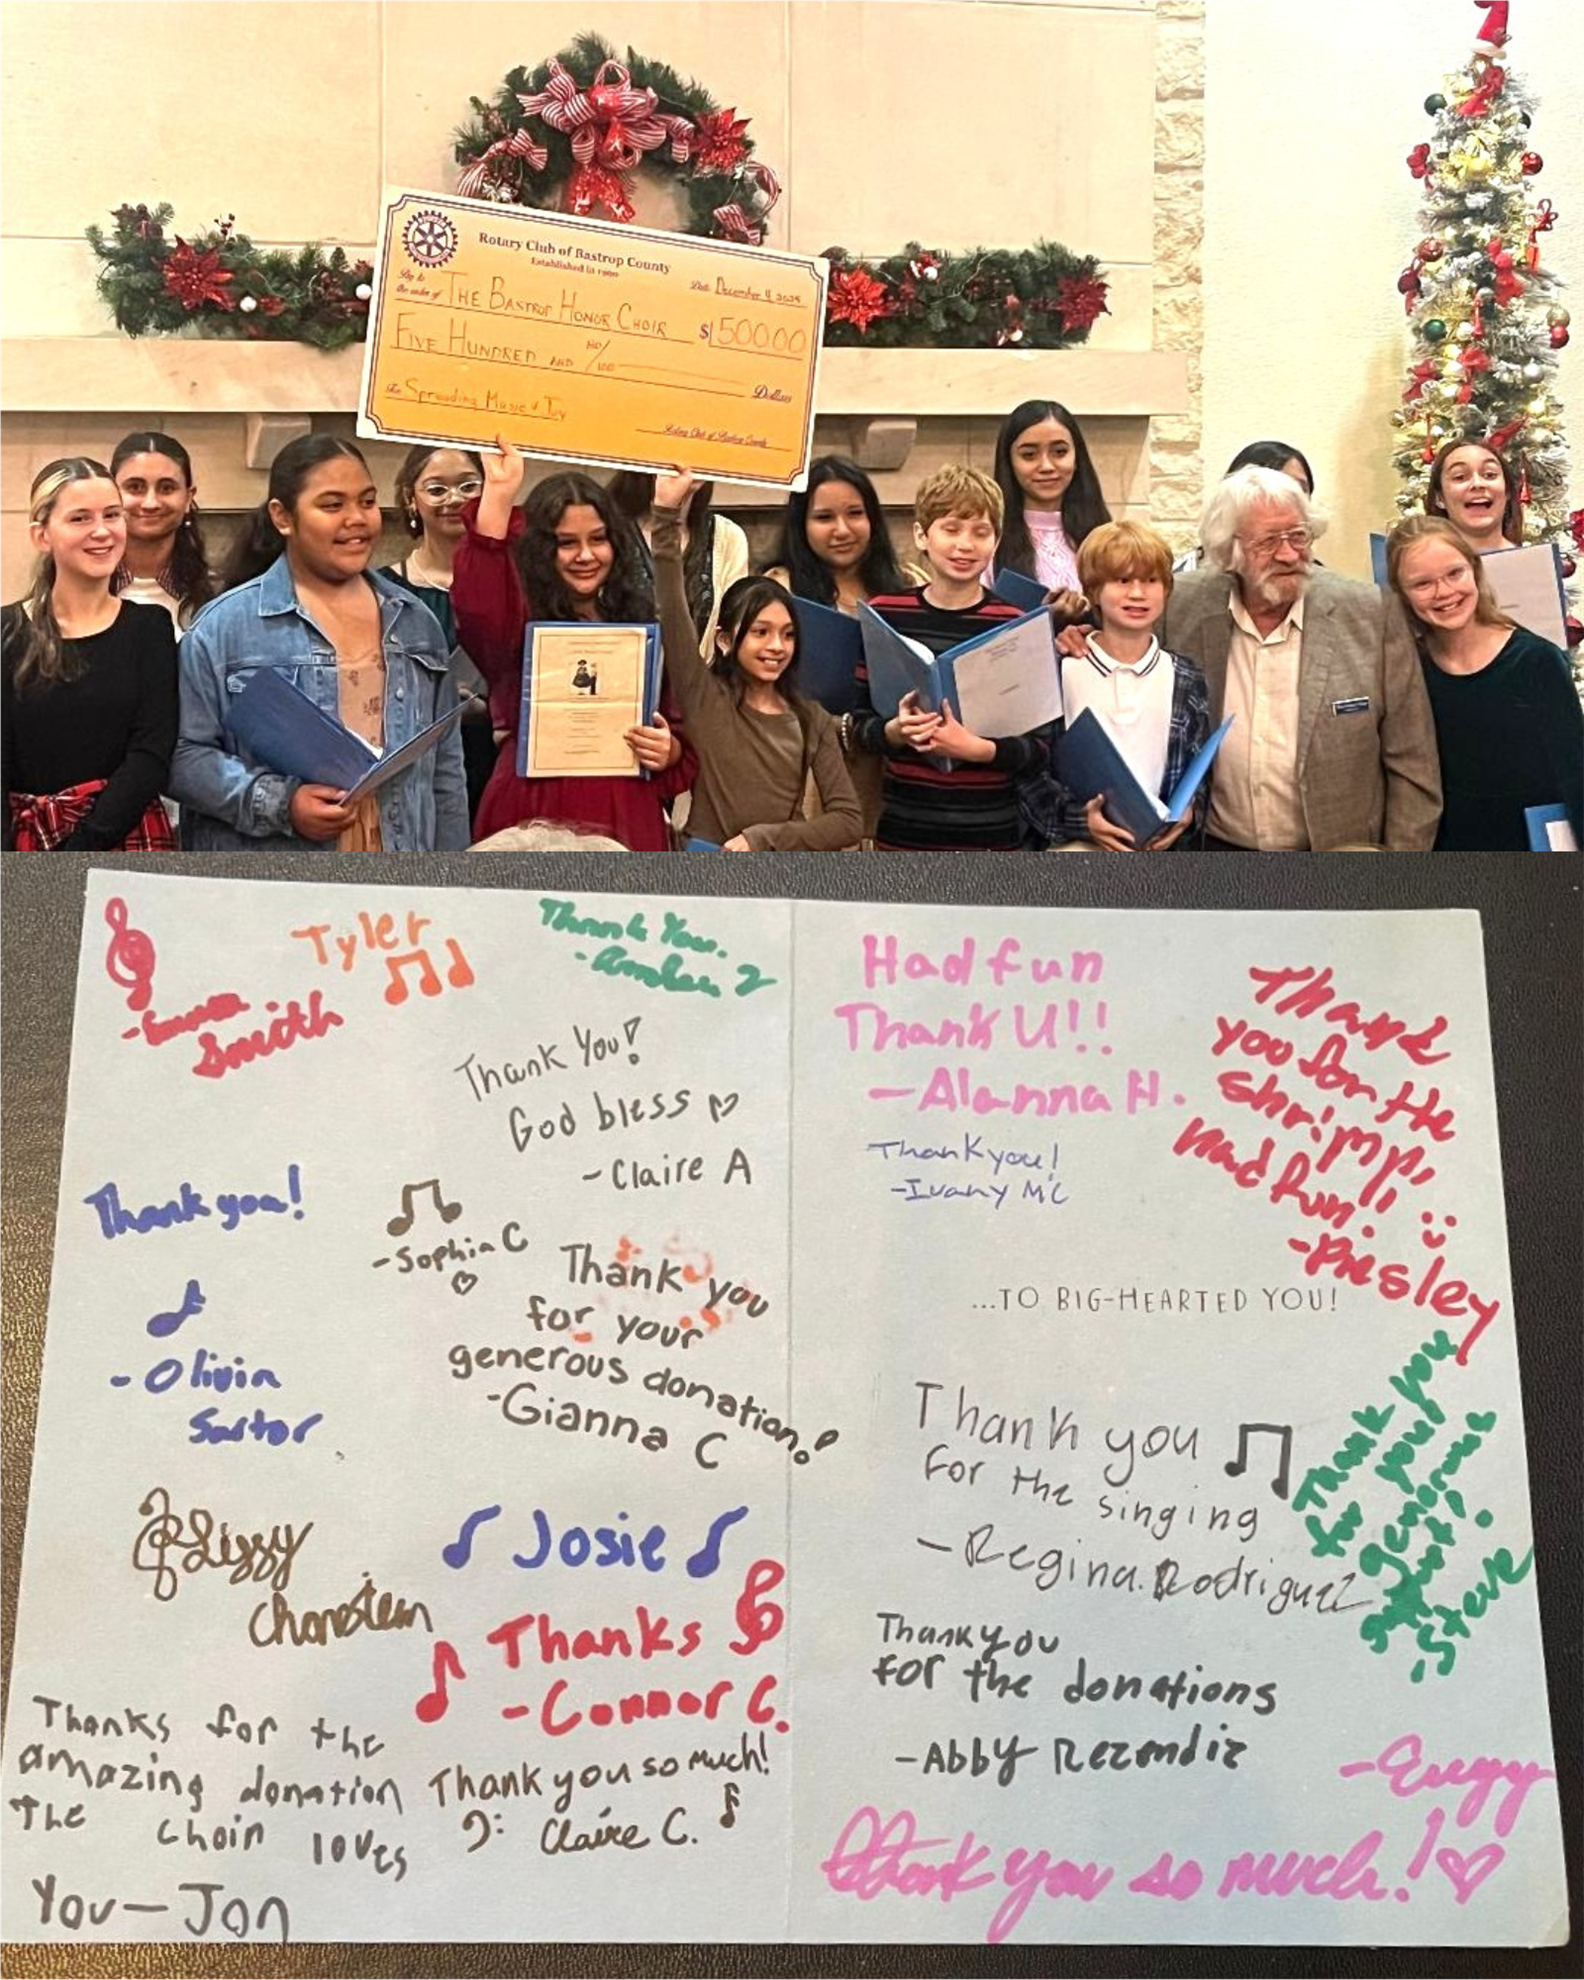 Rotary Club of Bastrop County
Pay to
the order of THE BASTROP HONOR CHOIR
Date December 4, 2025
$ 500.00
FIVE HUNDRED AND NO/100 Dollars
For Spreading Music & Joy
Rotary Club of Bastrop County
-Emma
Smith
Tyler
Thank You.
-Amber Z
Thank You!
God bless
-Claire A
Thank you!
-Olivia
Sartor
-Sophia C
Thank you
for your
generous donation!
-Gianna C
Lizzy
Josie
Thanks
-Connor C.
Thanks for the
amazing donation
The choir loves
You-Jon
Thank you so much!
Claire C.
Had fun
Thank U!!
-Alanna H.
Thank you!
-Ivany MC
Thank
you for the
shrimp,
Had fun!
-Presley
...TO BIG-HEARTED YOU!
Thank you
For the singing
-Regina. Rodriguez
Thank you
for your
generous
gift!
-Steve
Thank you
for the donations
-Abby Rezendiz
Thank you so much!